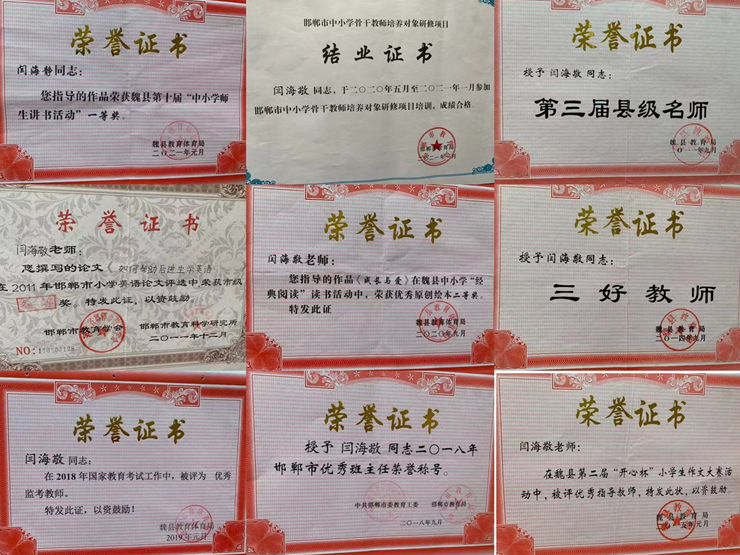 荣誉证书
闫海静同志:
您指导的作品荣获魏县第十届“中小学师
生讲书活动”一等奖。
魏县教育体育局
二〇二一年元月
邯郸市中小学骨干教师培养对象研修项目
结业证书
闫海敬同志,于二〇二〇年五月至二〇二一年一月参加
邯郸市中小学骨干教师培养对象研修项目培训,成绩合格。
二〇二一年一月
荣誉证书
授予 闫海敬 同志:
第三届县级名师
魏县教育局
荣誉证书
闫海敬老师:
您撰写的论文《如何帮助后进生学英语
在2011年邯郸市小学英语论文评选中荣获市级
奖。特发此证,以资鼓励。
邯郸市教育学会 邯郸市教育科学研究所
二〇一一年十二月
NO:
荣誉证书
闫海敬老师:
您指导的作品《成长与爱》在魏县中小学“经
典阅读”读书活动中,荣获优秀原创绘本二等奖。
特发此证
魏县教育体育局
二〇二〇年九月
荣誉证书
授予闫海敬同志:
三好教师
魏县教育局
二〇一四年九月
荣誉证书
闫海敬 同志:
在2018年国家教育考试工作中,被评为 优秀
监考教师。
特发此证,以资鼓励!
魏县教育体育局
2019年元月
荣誉证书
授予 闫海敬 同志二〇一八年
邯郸市优秀班主任荣誉称号。
中共邯郸市委教育工委 邯郸市教育局
二〇一八年九月
荣誉证书
闫海敬老师:
在魏县第二届“开心杯”小学生作文大赛活
动中,被评优秀指导教师,特发此状,以资鼓励。
魏县教育局